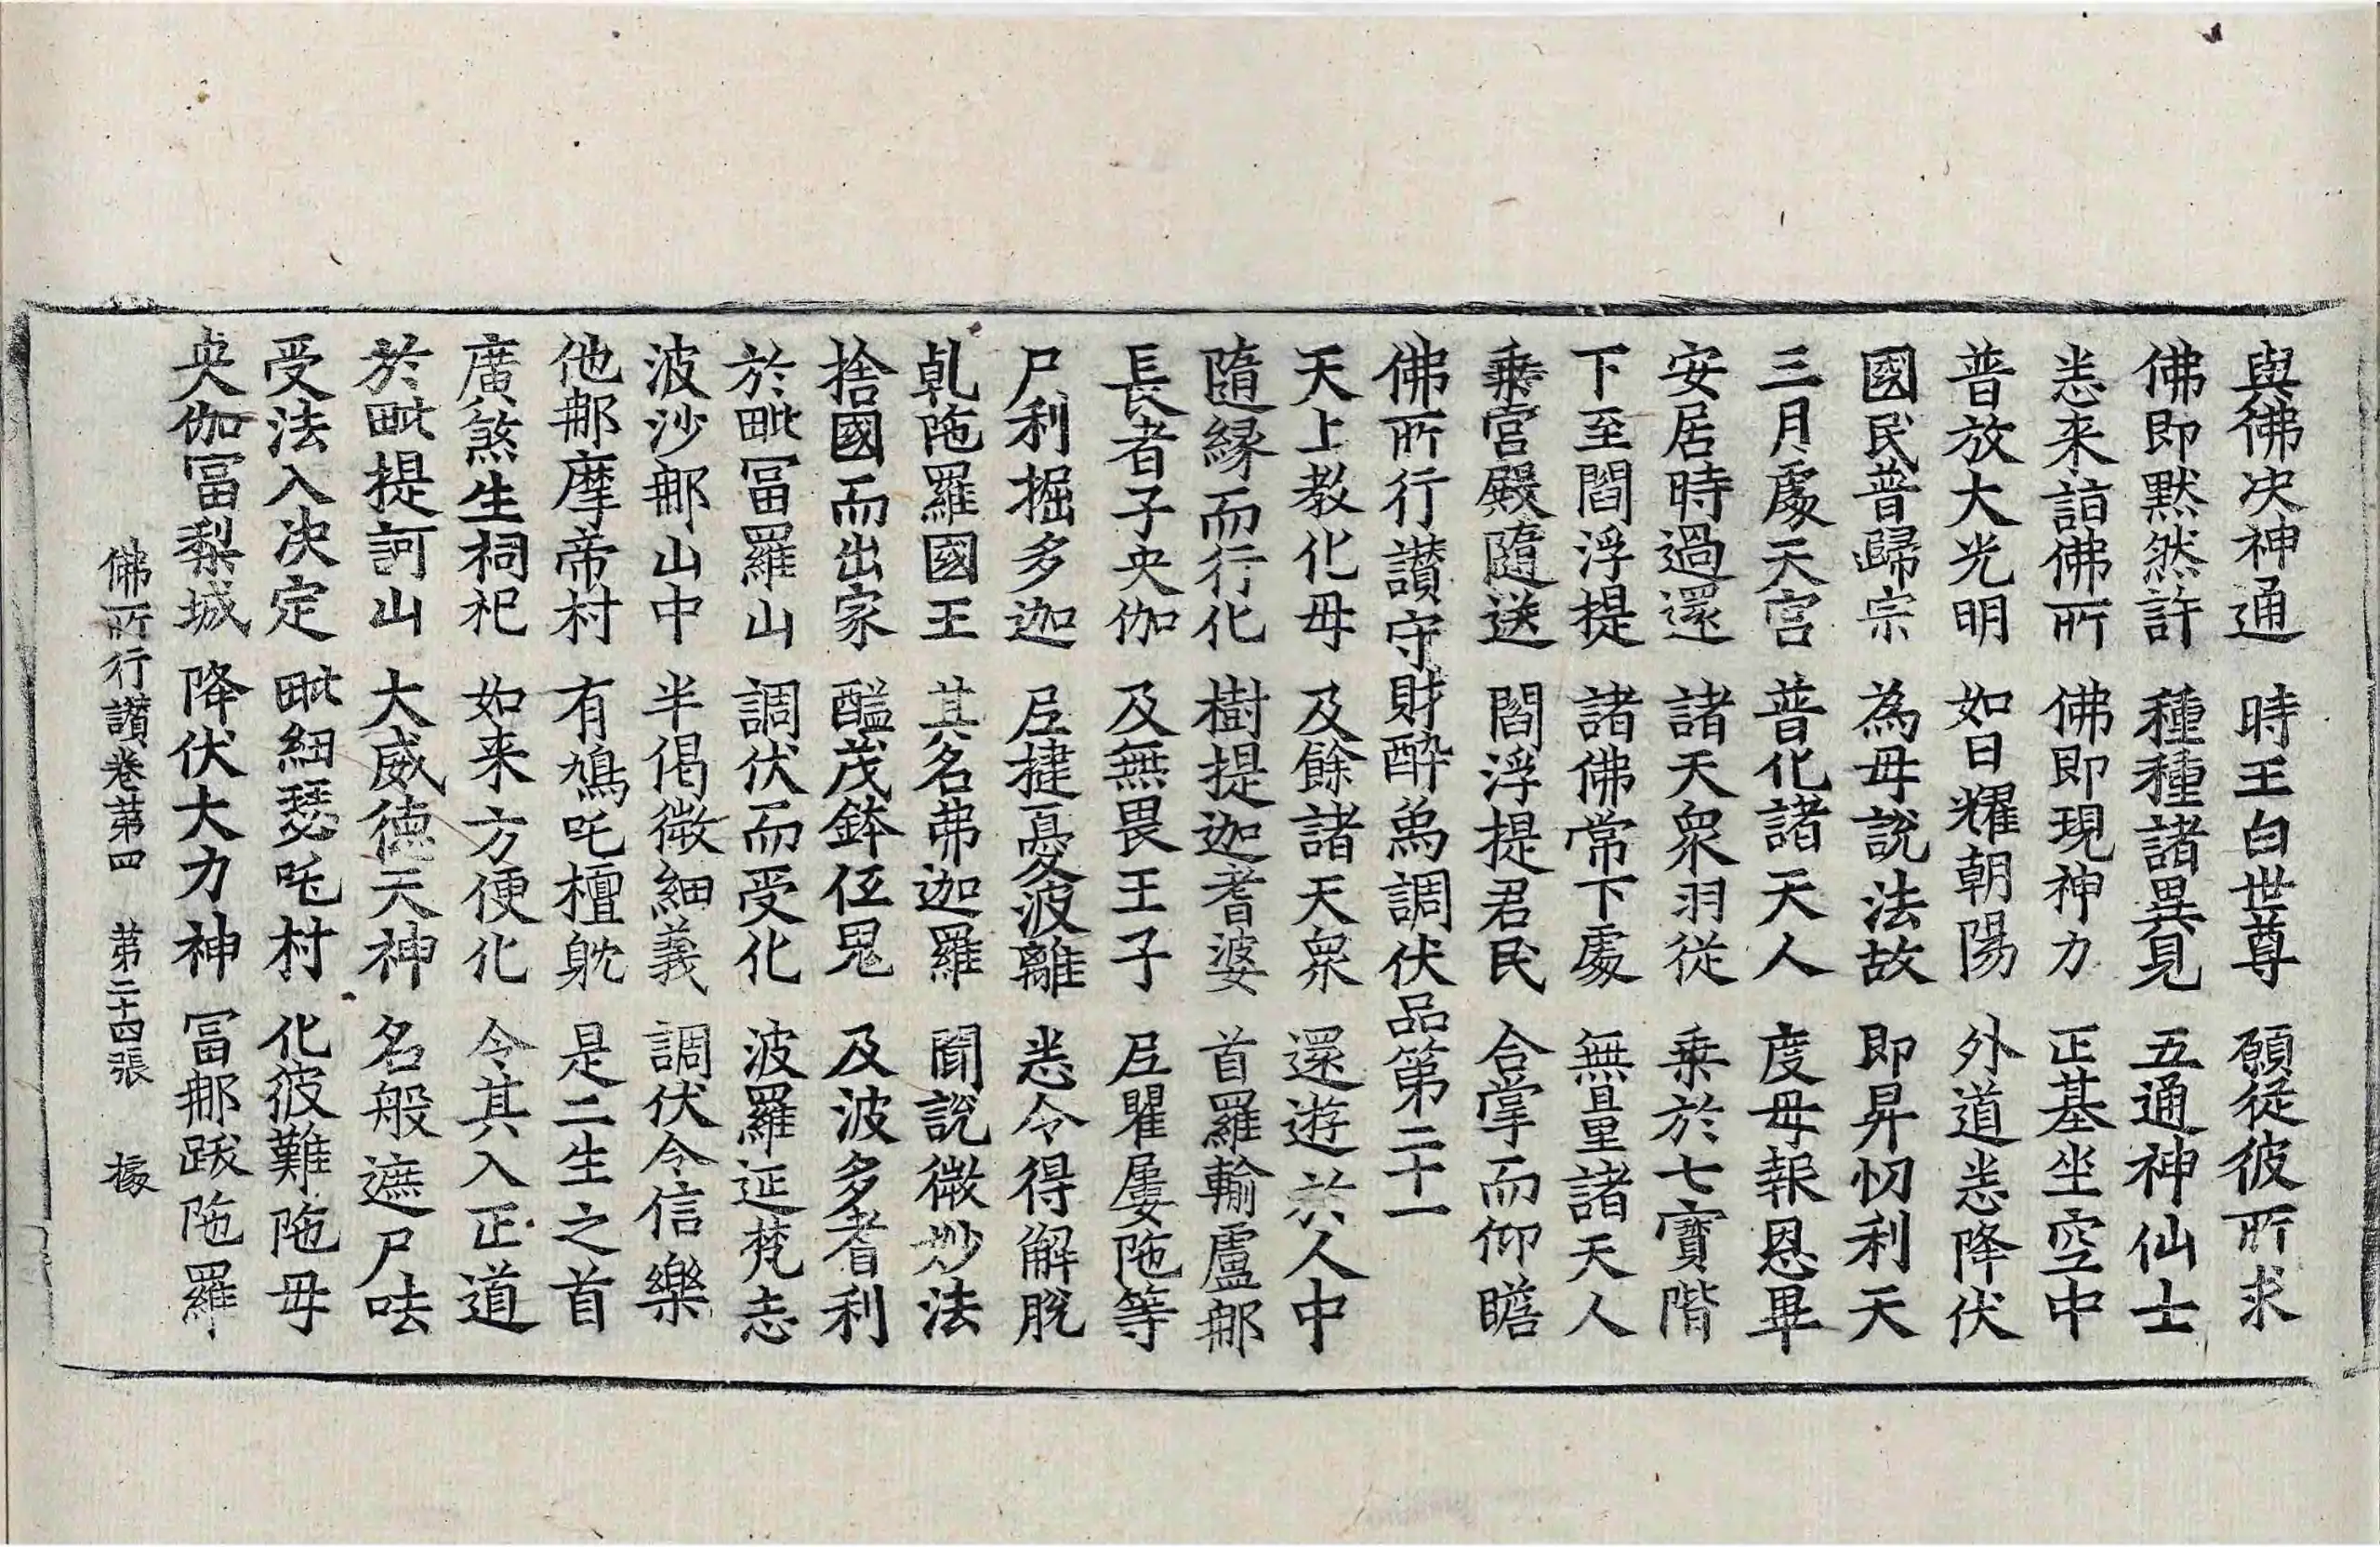 與佛决神通 時王白世尊 願從彼所求
佛即默然許 種種諸異見 五通神仙士
悉来詣佛所 佛即現神力 正基坐空中
普放大光明 如日耀朝陽 外道悉降伏
國民普歸宗 為母說法故 即昇忉利天
三月處天宫 普化諸天人 度母報恩畢
安居時過還 諸天衆羽從 乗於七寳階
下至閻浮提 諸佛常下處 無量諸天人
乗宫殿隨送 閻浮提君民 合掌而仰瞻
佛所行讃守財醉為調伏品第二十一
天上教化母 及餘諸天衆 還遊於人中
隨縁而行化 樹提迦耆婆 首羅輸盧那
長者子央伽 及無畏王子 尼瞿屢陁等
尸利掘多迦 尼揵憂波離 悉令得解脫
乹陁羅國王 其名弗迦羅 聞說微妙法
捨國而出家 醯茂鉢伍鬼 及波多耆利
於毗冨羅山 調伏而受化 波羅延梵志
波沙那山中 半偈微細義 調伏令信樂
他那摩帝村 有鳩吒檀躭 是二生之首
廣煞生祠祀 如来方便化 令其入正道
於毗提訶山 大威德天神 名般遮尸呿
受法入决定 毗紐瑟吒村 化彼難陁母
央伽冨梨城 降伏大力神 冨那跋陁羅
佛所行讃卷第四 第二十四張 㯫